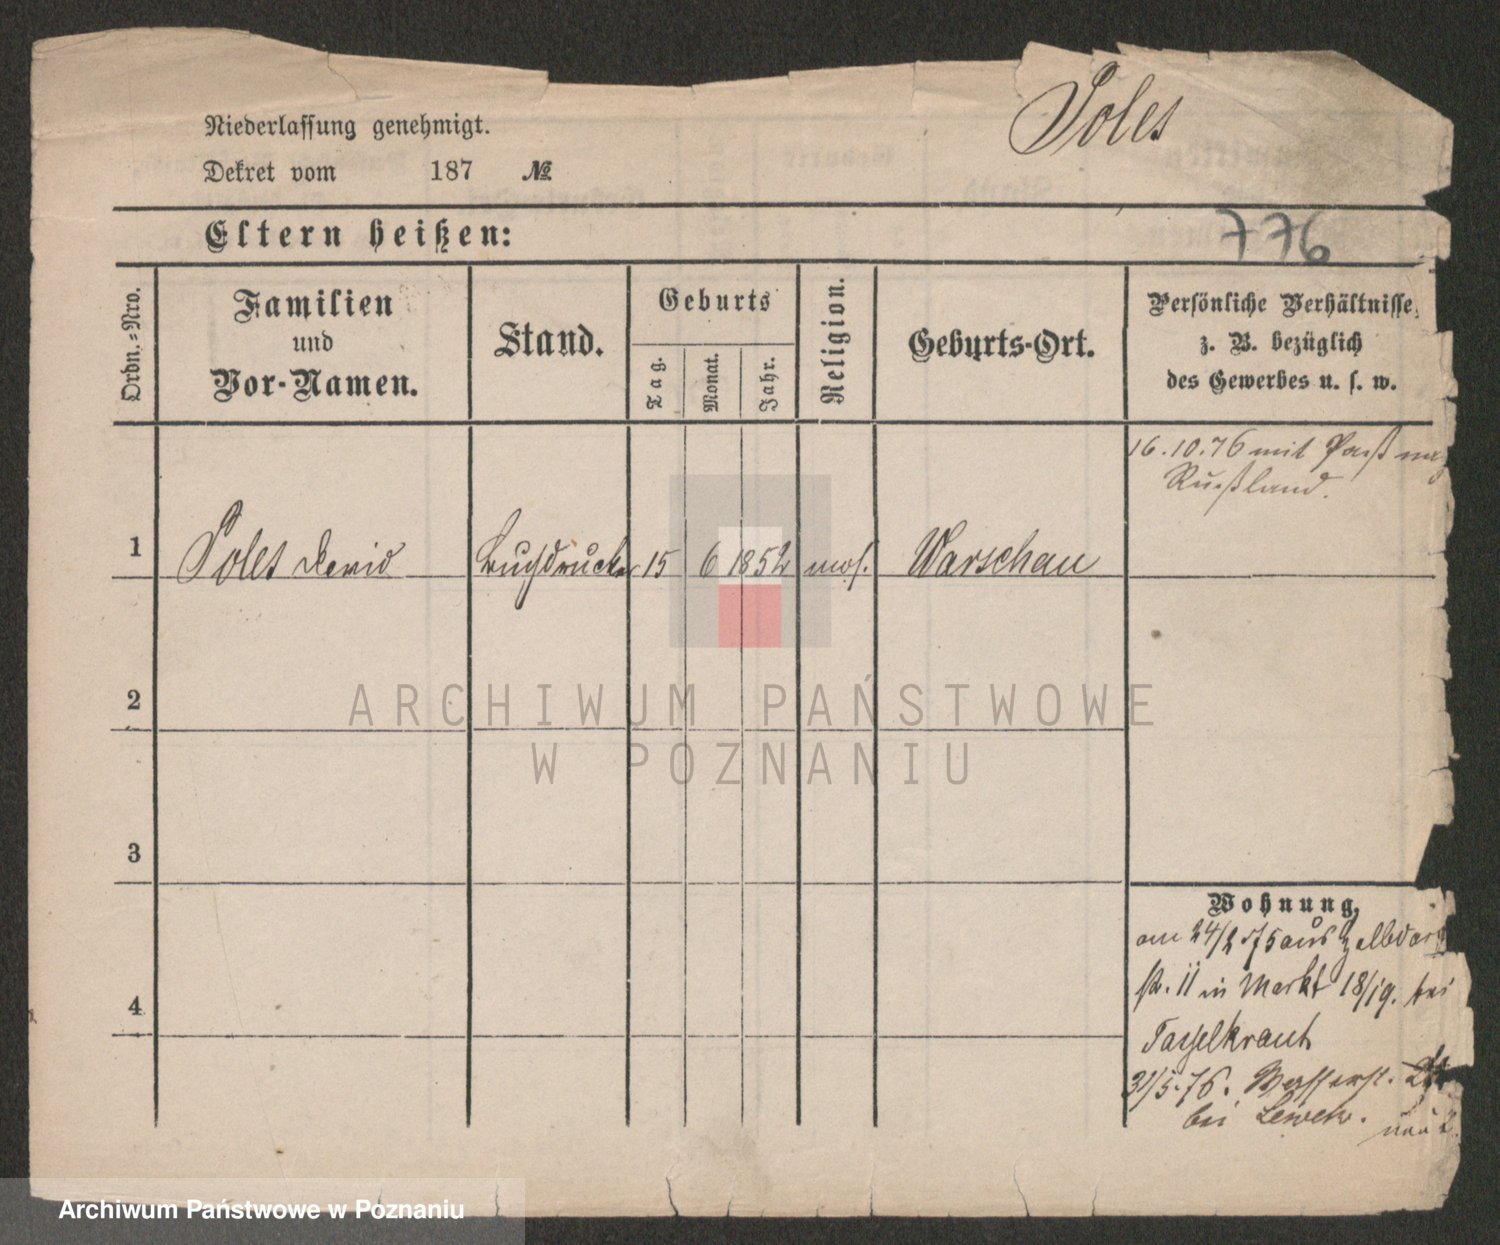 Poles
Niederlassung genehmigt.
Dekret vom 187 №
Eltern heißen:
776
Ordn.-Nro.
Familien
und
Vor-Namen.
Stand.
Geburts
Tag.
Monat.
Jahr.
Religion.
Geburts-Ort.
Persönliche Verhältnisse,
z. B. bezüglich
des Gewerbes u. s. w.
16.10.76 mit Paß
Rußland.
1 Poles David Buchdrucker 15 6 1852 mos. Warschau
2
3
4
Wohnung,
am 24/2 75 aus
in Markt 18/19. bei
31/5.76. Wasserstr.
bei
ARCHIWUM PAŃSTWOWE
W POZNANIU
Archiwum Państwowe w Poznaniu